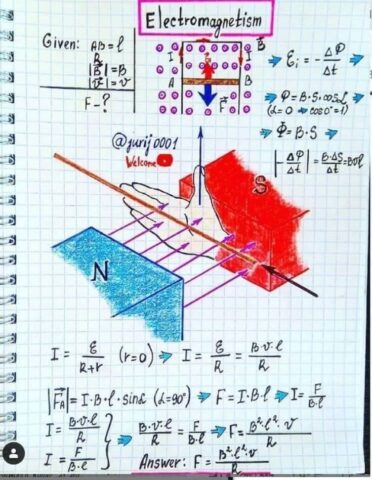 Electromagnetism
Given: AB=l
R
|B⃗|=B
|v⃗|=v
F-?
I I B⃗
A B
F⃗
Ɛi = - ΔΦ/Δt
Φ=B·S·cosα
(α=0 ⇒ cos0°=1)
Φ=B·S
|-ΔΦ/Δt|=B·ΔS/Δt=Bvl
@jurij0001
Welcome
S
N
I = Ɛ/(R+r) (r=0) ⇒ I = Ɛ/R = B·v·l/R
|F⃗A|=I·B·l·sinα (α=90°) ⇒ F=I·B·l ⇒ I= F/(B·l)
I = B·v·l/R
I = F/(B·l)
⇒ B·v·l/R = F/(B·l) ⇒ F= B²·l²·v/R
Answer: F = B²·l²·v/R